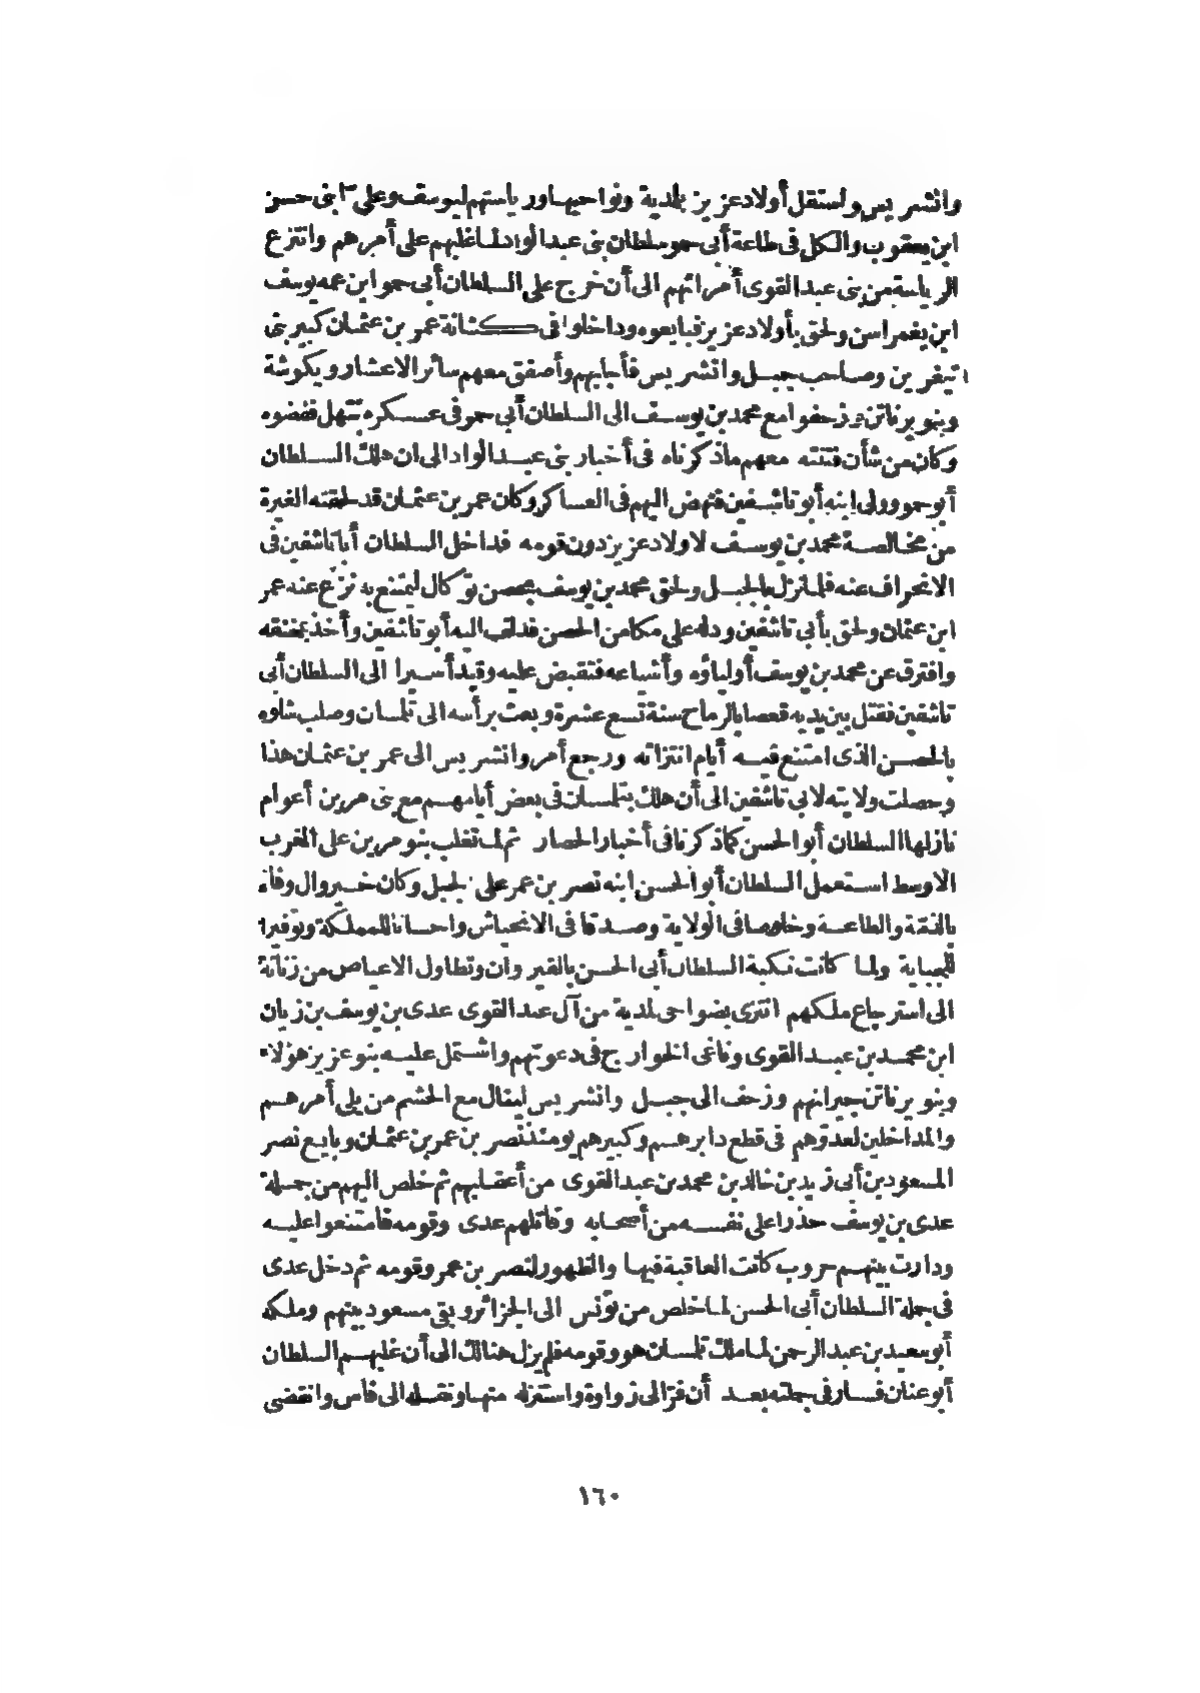 وانشريس واستقل أولاد عزيز بالمدية ونواحيها ورياستهم ليوسف وعلى ابنى حسن
ابن يعقوب والكل فى طاعة أبى حمو سلطان بنى عبد الواد لما غلبهم على أمرهم وانتزع
الرياسة من بنى عبد القوى أمرائهم الى أن خرج على السلطان أبى حمو ابن عمه يوسف
ابن يغمراسن ولحق بأولاد عزيز فبايعوه وداخلوا فى كتانة عمر بن عثمان كبير بنى
تيغرين وصاحب جبل وانشريس فأجابهم وأصفق معهم سائر الاعشار ويكوشة
وبنو يرناتن وزحفوا مع محمد بن يوسف الى السلطان أبى حمو فى عسكره بتهل ففضوه
وكان من شأن فتنته معهم ماذكرناه فى أخبار بنى عبد الواد الى ان هلك السلطان
أبو حمو وولى ابنه أبو تاشفين فنهض اليهم فى العساكر وكان عمر بن عثمان قد لحقته الغيرة
من مخالصة محمد بن يوسف لاولاد عزيز دون قومه فداخل السلطان أبا تاشفين فى
الانحراف عنه فلما نزل بالجبل ولحق محمد بن يوسف بحصن توكال ليمتنع به نزع عنه عمر
ابن عثمان ولحق بأبى تاشفين ودله على مكامن الحصن فدلف اليه أبو تاشفين وأخذ بمخنقه
وافترق عن محمد بن يوسف أولياؤه وأشياعه فتقبض عليه وقيد أسيرا الى السلطان أبى
تاشفين فقتل بين يديه قعصا بالرماح سنة تسع عشرة وبعث برأسه الى تلمسان وصلب شلوه
بالحصن الذى امتنع فيه أيام انتزائه ورجع أمر وانشريس الى عمر بن عثمان هذا
وحصلت ولايته لابى تاشفين الى أن هلك بتلمسان فى بعض أيامهم مع بنى مرين أعوام
نازلها السلطان أبو الحسن كما ذكرنا فى أخبار الحصار ثم لما تغلب بنو مرين على المغرب
الاوسط استعمل السلطان أبو الحسن ابنه نصر بن عمر على الجبل وكان خير وال وفاء
بالذمة والطاعة وخلوصا فى الولاية وصدقا فى الانحياش واحسانا للمملكة وتوفيرا
للجباية ولما كانت نكبة السلطان أبى الحسن بالقيروان وتطاول الاعياص من زناتة
الى استرجاع ملكهم انتزى بضواحى لمدية من آل عبد القوى عدى بن يوسف بن زيان
ابن محمد بن عبد القوى وناغى الخوارج فى دعوتهم واشتمل عليه بنو عزيز هؤلاء
وبنو يرناتن جيرانهم وزحف الى جبل وانشريس لينال مع الحشم من يلى أمرهم
والمداخلين لعدوهم فى قطع دابرهم وكبيرهم يومئذ نصر بن عمر بن عثمان وبايع نصر
المسعود بن أبى زيد بن خالد بن محمد بن عبد القوى من أعقابهم ثم خلص اليهم من جملة
عدى بن يوسف حذرا على نفسه من أصحابه وقاتلهم عدى وقومه فامتنعوا عليه
ودارت بينهم حروب كانت العاقبة فيها والظهور لنصر بن عمر وقومه ثم دخل عدى
فى جملة السلطان أبى الحسن لما خلص من تونس الى الجزائر وبقى مسعود بينهم وملكه
أبو سعيد بن عبد الرحمن لما ملك تلمسان هو وقومه فلم يزل هنالك الى أن غلبهم السلطان
أبو عنان فسار فى جملته بعد أن فر الى زواوة واستنزله منها ونقله الى فاس وانقضى
١٦٠